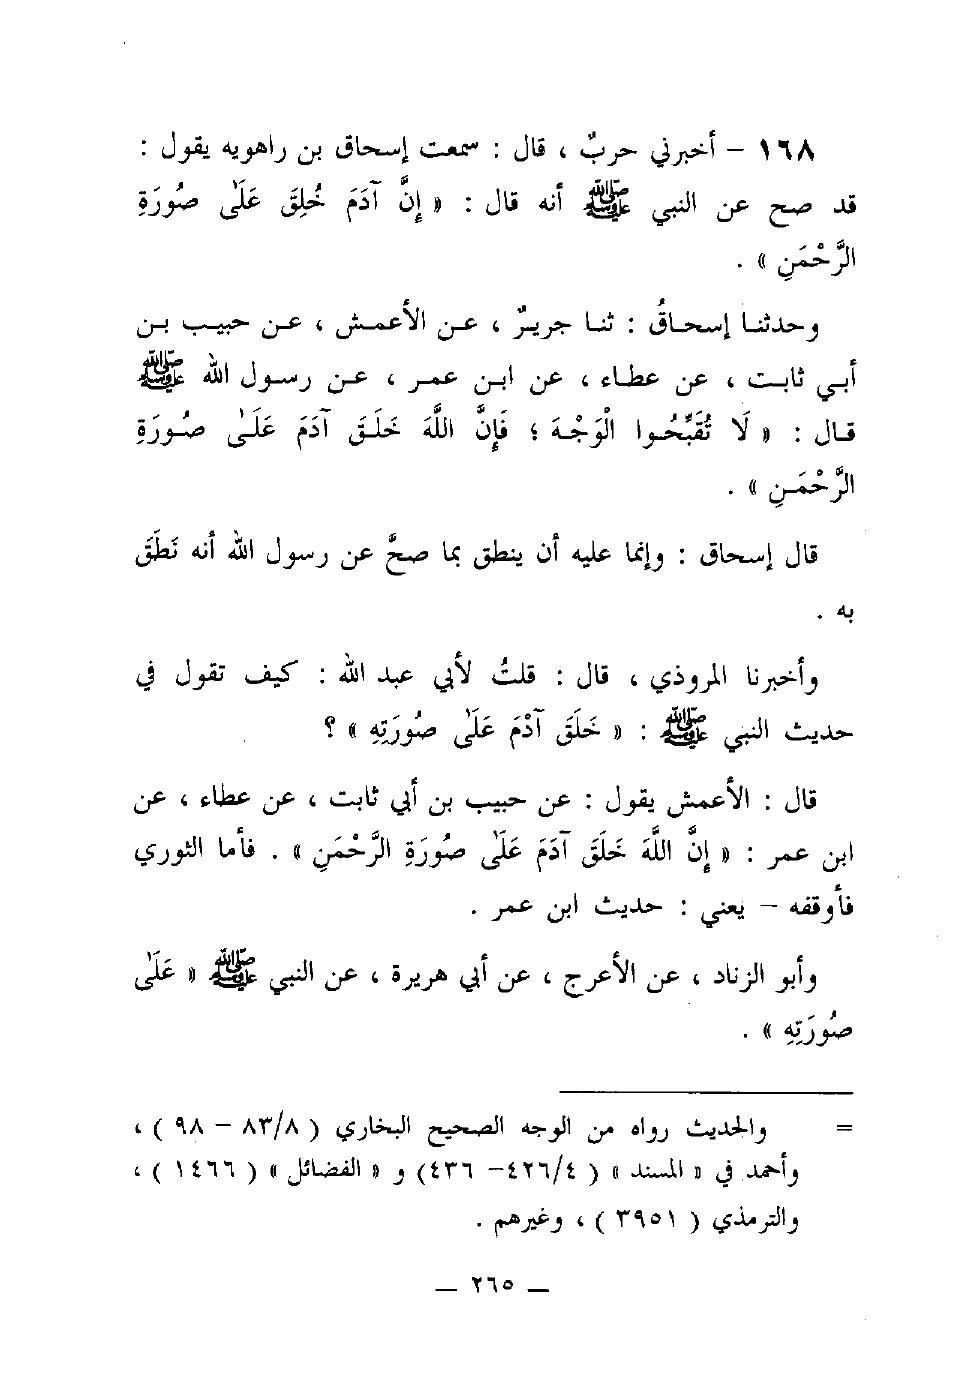 ١٦٨ – أخبرني حربٌ ، قال : سمعت إسحاق بن راهويه يقول :
قد صح عن النبي ﷺ أنه قال : « إِنَّ آدَمَ خُلِقَ عَلَىٰ صُورَةِ
الرَّحْمَنِ » .
وحدثنا إسحاقُ : ثنا جريرٌ ، عن الأعمش ، عن حبيب بن
أبي ثابت ، عن عطاء ، عن ابن عمر ، عن رسول الله ﷺ
قال : « لَا تُقَبِّحُوا الْوَجْهَ ؛ فَإِنَّ اللَّهَ خَلَقَ آدَمَ عَلَىٰ صُورَةِ
الرَّحْمَنِ » .
قال إسحاق : وإنما عليه أن ينطق بما صحَّ عن رسول الله أنه نَطَقَ
به .
وأخبرنا المروذي ، قال : قلتُ لأبي عبد الله : كيف تقول في
حديث النبي ﷺ : « خَلَقَ آدْمَ عَلَىٰ صُورَتِهِ » ؟
قال : الأعمش يقول : عن حبيب بن أبي ثابت ، عن عطاء ، عن
ابن عمر : « إِنَّ اللَّهَ خَلَقَ آدَمَ عَلَىٰ صُورَةِ الرَّحْمَنِ » . فأما الثوري
فأوقفه – يعني : حديث ابن عمر .
وأبو الزناد ، عن الأعرج ، عن أبي هريرة ، عن النبي ﷺ « عَلَىٰ
صُورَتِهِ » .
= والحديث رواه من الوجه الصحيح البخاري ( ٨٣/٨ – ٩٨ ) ،
وأحمد في « المسند » ( ٤٢٦/٤– ٤٣٦) و « الفضائل » ( ١٤٦٦ ) ،
والترمذي ( ٣٩٥١ ) ، وغيرهم .
— ٢٦٥ —